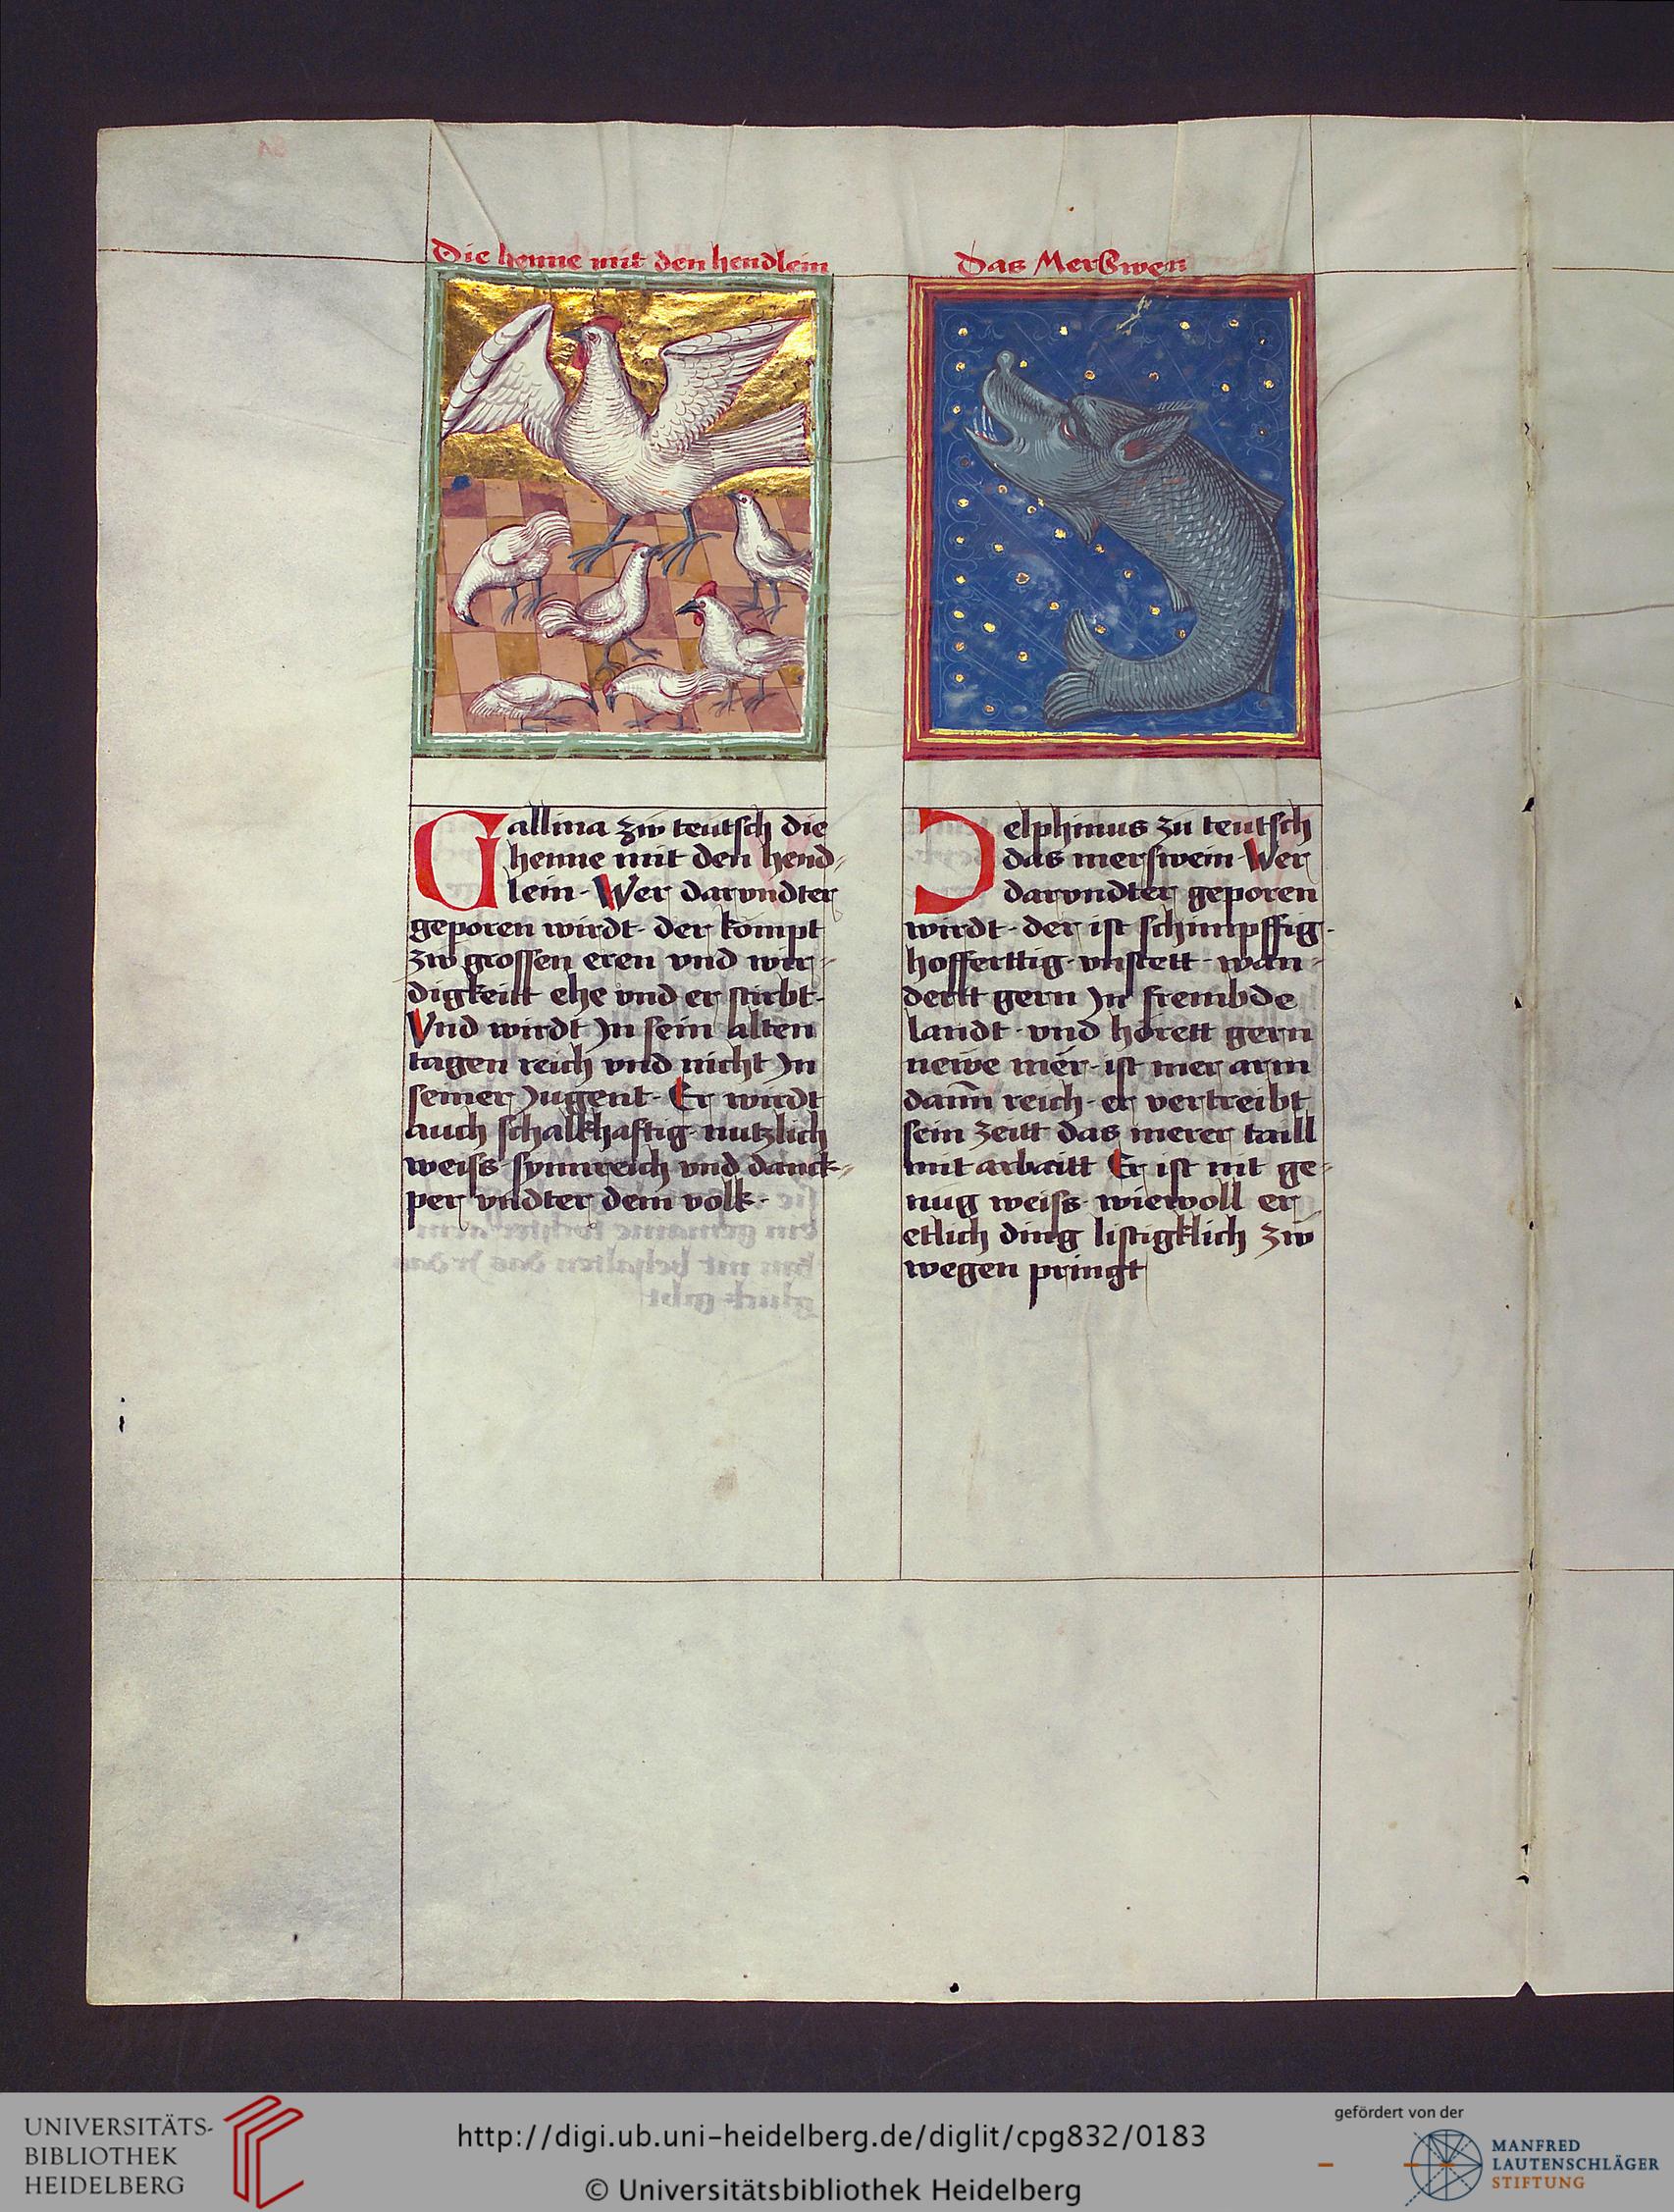 Die henne mit den hendlein
Gallina zw teutsch die
henne mit den hend-
lein · Wer darvndter
geporen wirdt · der kompt
zw grossen eren vnd wir-
digkeitt ehe vnd er stirbt ·
Vnd wirdt Jn sein alten
tagen reich vnd nicht Jn
seiner Jugent · Er wirdt
auch schalkhafftig · nutzlich
weiss · synnreich vnd danck-
per vndter dem volk ·
Das Merßwen
Delphinus zu teutsch
das merswein Wer
darvndter geporen
wirdt · der ist schimpffig ·
hofferttig · vnstett · wan-
dertt gern Jn frembde
landt · vnd hörett gern
newe mér · ist mer arm
dann̄ reich · er vertreibt
sein zeitt das merer taill
mit arbaitt Er ist nit ge-
nug weiss · wiewoll er
etlich ding listigklich zw
wegen pringt
UNIVERSITÄTS-
BIBLIOTHEK
HEIDELBERG
http://digi.ub.uni-heidelberg.de/diglit/cpg832/0183
© Universitätsbibliothek Heidelberg
gefördert von der
MANFRED
LAUTENSCHLÄGER
STIFTUNG